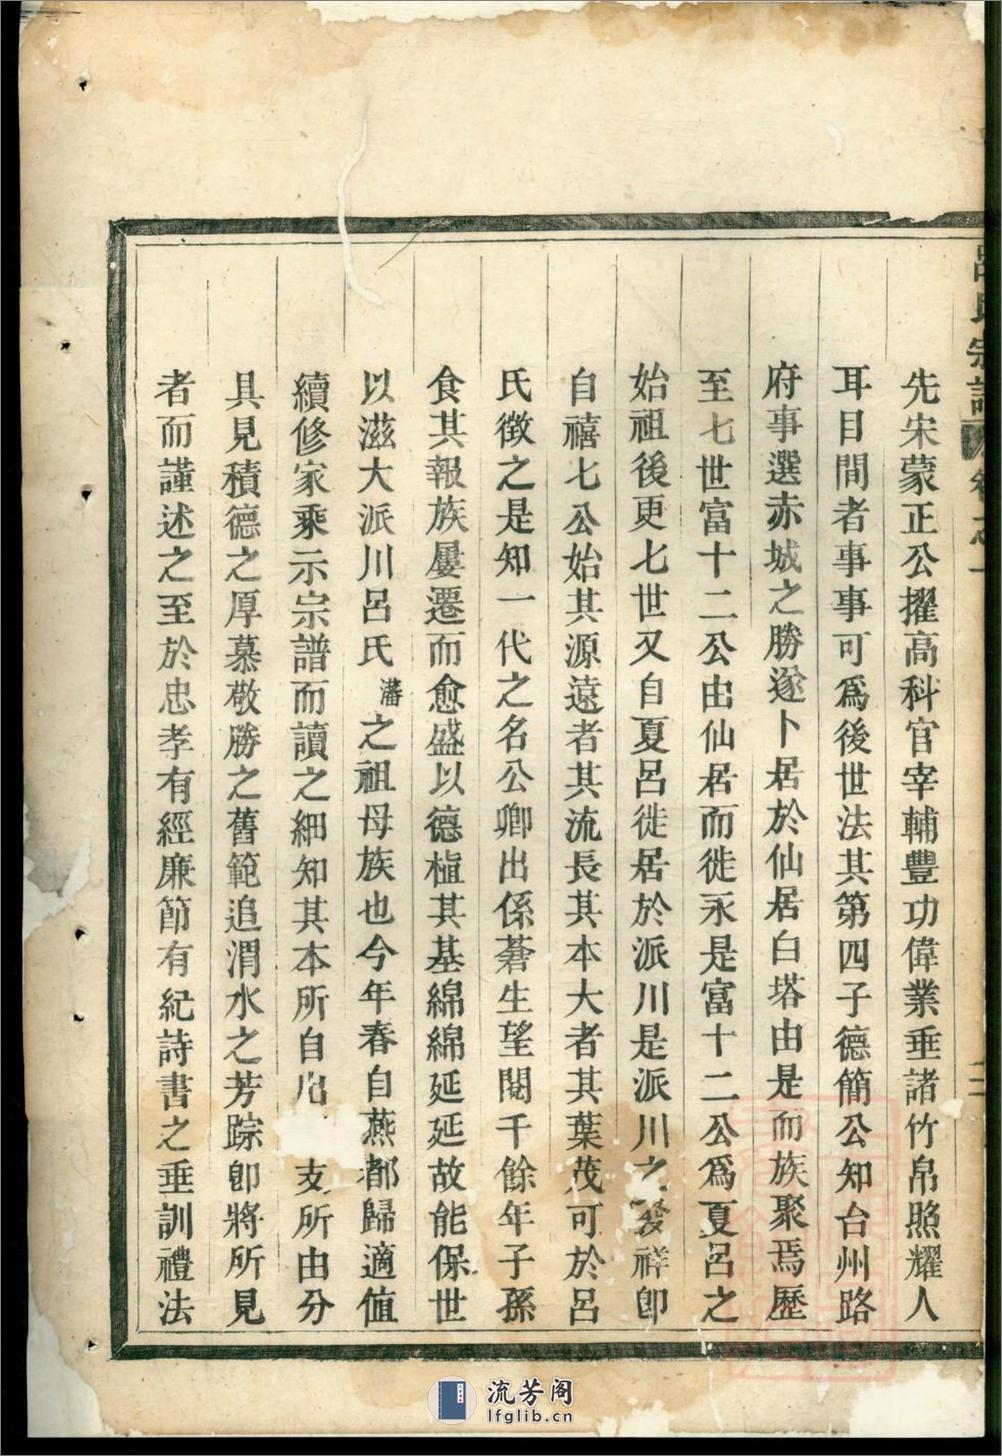 呂氏宗譜 卷之一
先宋蒙正公擢高科官宰輔豐功偉業垂諸竹帛照耀人
耳目間者事事可為後世法其第四子德簡公知台州路
府事選赤城之勝遂卜居於仙居白塔由是而族聚焉歷
至七世富十二公由仙居而徙永是富十二公為夏呂之
始祖後更七世又自夏呂徙居於派川是派川之發祥卽
自禧七公始其源遠者其流長其本大者其葉茂可於呂
氏徵之是知一代之名公卿出係蒼生望閱千餘年子孫
食其報族屢遷而愈盛以德植其基綿綿延延故能保世
以滋大派川呂氏 藩 之祖母族也今年春自燕都歸適值
續修家乘示宗譜而讀之細知其本所自 支所由分
具見積德之厚慕敬勝之舊範追渭水之芳踪卽將所見
者而謹述之至於忠孝有經廉節有紀詩書之垂訓禮法
流芳阁
lfglib.cn